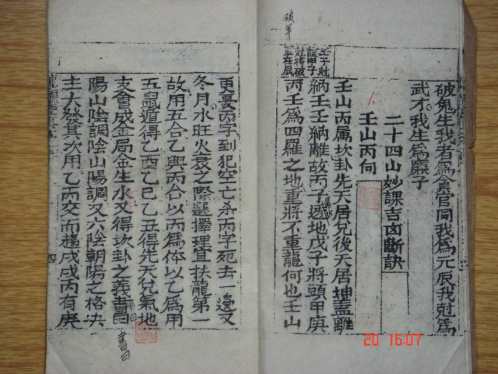 破鬼生我者為食官同我為元辰我尅為
武才我生為廉子
二十四山妙課吉凶斷訣
壬山丙向
壬山丙屬坎卦先天居兌後天居坤蓋離
納壬壬納離故丙子遁地戊子將頭甲庚
丙壬為四羅之地重將不重龍何也壬山
更忌丙字到犯空亡杀丙字死去一邊又
冬月水旺火衰之際選擇理宜扶龍第一
故用五合乙與丙合以丙為体以乙為用
五鼠遁得乙酉乙巳乙丑得先天兌氣地
支會成金局金生水又得坎卦之義書曰
陽山陰調陰山陽調又六陰朝陽之格决
主大發其次用乙丙交而趨戌戌丙有庚
20 16:07